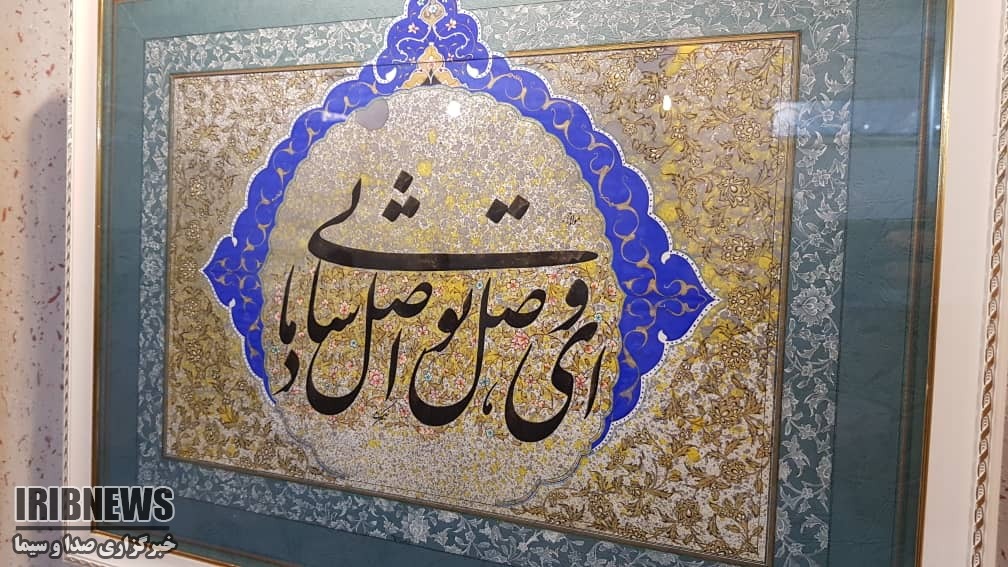 ای وصل تو اصل شادمانی
IRIBNEWS
خبرگزاری صدا و سیما